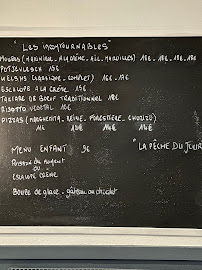 "Les incontournables"
MOULES (MARINIÈRE, AU CRÈME, AIL, MAROILLES) 16€ 18€ 18€ 19€
POTJEVLEESCH 18€
WELSHS (CLASSIQUE, COMPLET) 16€ 17€
ESCALOPE À LA CRÈME 18€
TARTARE DE BOEUF TRADITIONNEL 18€
RISOTTO VÉGÉTAL 15€
PIZZAS (MARGHERITA, REINE, FORESTIÈRE, CHORIZO)
MENU ENFANT 9€
"LA PÊCHE DU JOUR
ou
Boule de glace, gâteau au chocolat